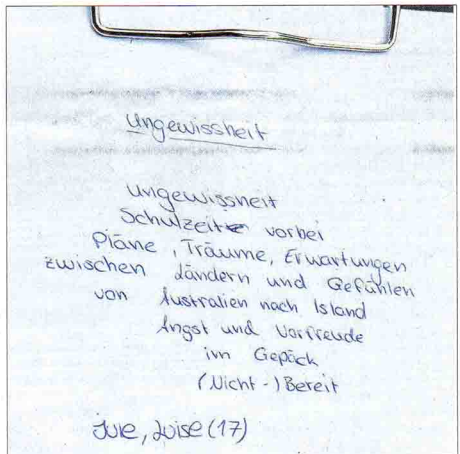 Ungewissheit
Ungewissheit
Schulzeit vorbei
Pläne, Träume, Erwartungen
zwischen Ländern und Gefühlen
von Australien nach Island
Angst und Vorfreude
im Gepäck
(Nicht-)Bereit
Jule, Luise (17)